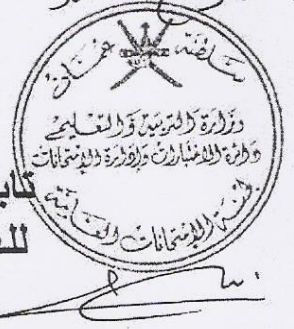 سلطنة عمان
وزارة التربية والتعليم
دائرة الامتحانات وإدارة الامتحانات
تاب
لل
لجنة الامتحانات العملية